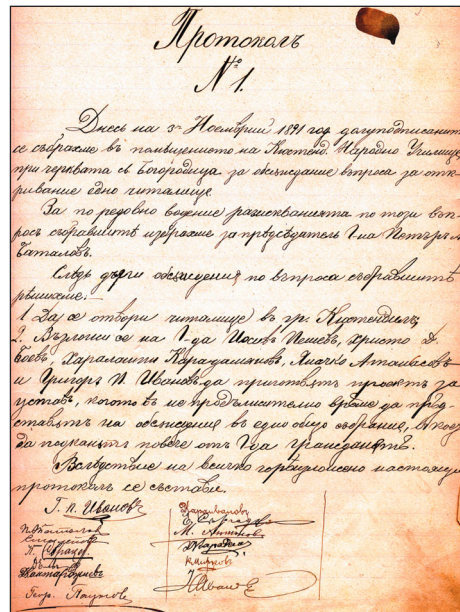 Протоколъ
№ 1.
Днесь на 3й Ноемврий 1891 год долуподписанитѣ
се събрахме въ помѣщението на Кюстенд. Народно Училище
при черквата св Богородица за обсъждание въпроса за отк-
ривание едно читалище
За по редовно водение разискванията по този въп-
росъ събравшитѣ избрахме за прѣдсѣдатель Г-на Петъръ А
Баталовъ.
Слѣдъ дълги обсъждения по въпроса събравшитѣ
рѣшихме:
1 Да се отвори читалище въ гр. Кюстендилъ
2. Възложи се на Г-да Иосивъ Пешевъ, Христо Д.
Боевъ, Харалампи Карадамяновъ, Миачко Атанасовъ
и Григоръ П. Ивановъ да приготвятъ проектъ за
уставъ, когото въ не продължително врѣме да прѣд-
ставятъ на обсъждание въ едно общо събрание, въ кое
да поканятъ повече отъ Г-да гражданитѣ.
Вслѣдствие на всичко горѣизложено настоящи
протоколъ се състави.
Г. П. Ивановъ
М. Антоновъ
Геор. Наумовъ